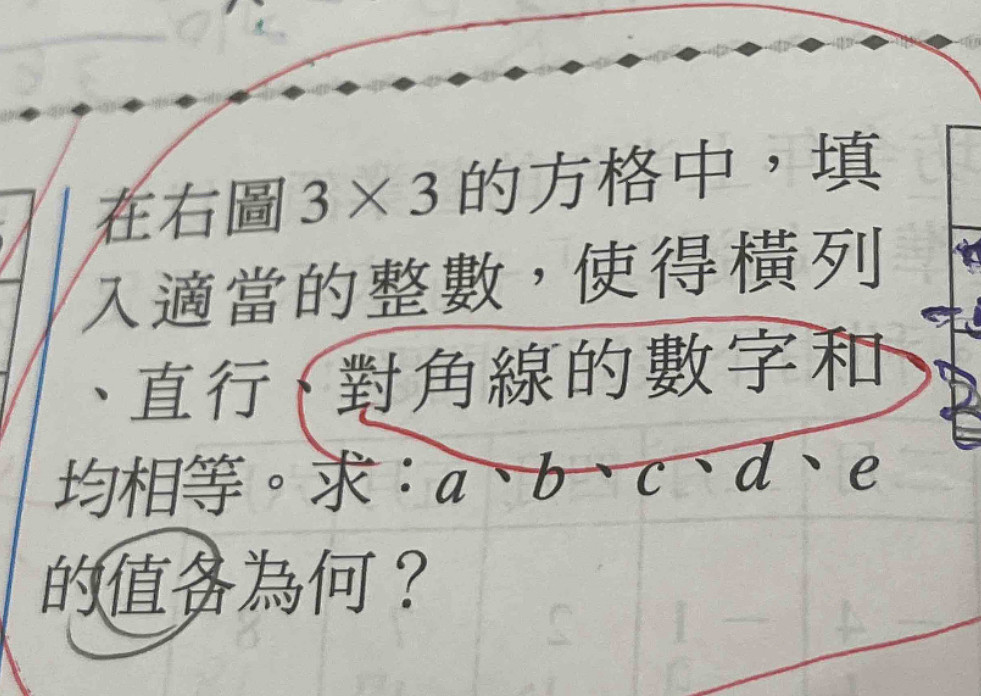 在右圖3×3的方格中，填
入適當的整數，使得橫列
、直行、對角線的數字和
均相等。求：a、b、c、d、e
的值各為何？